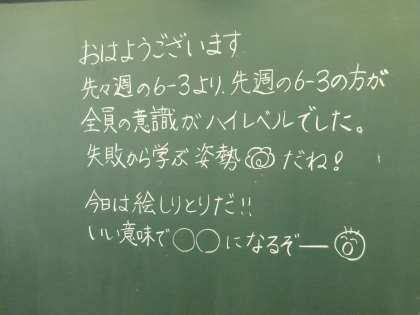 おはようございます
先々週の6-3より、先週の6-3の方が
全員の意識がハイレベルでした。
失敗から学ぶ姿勢だね!
今日は絵しりとりだ!!
いい意味で○○になるぞー